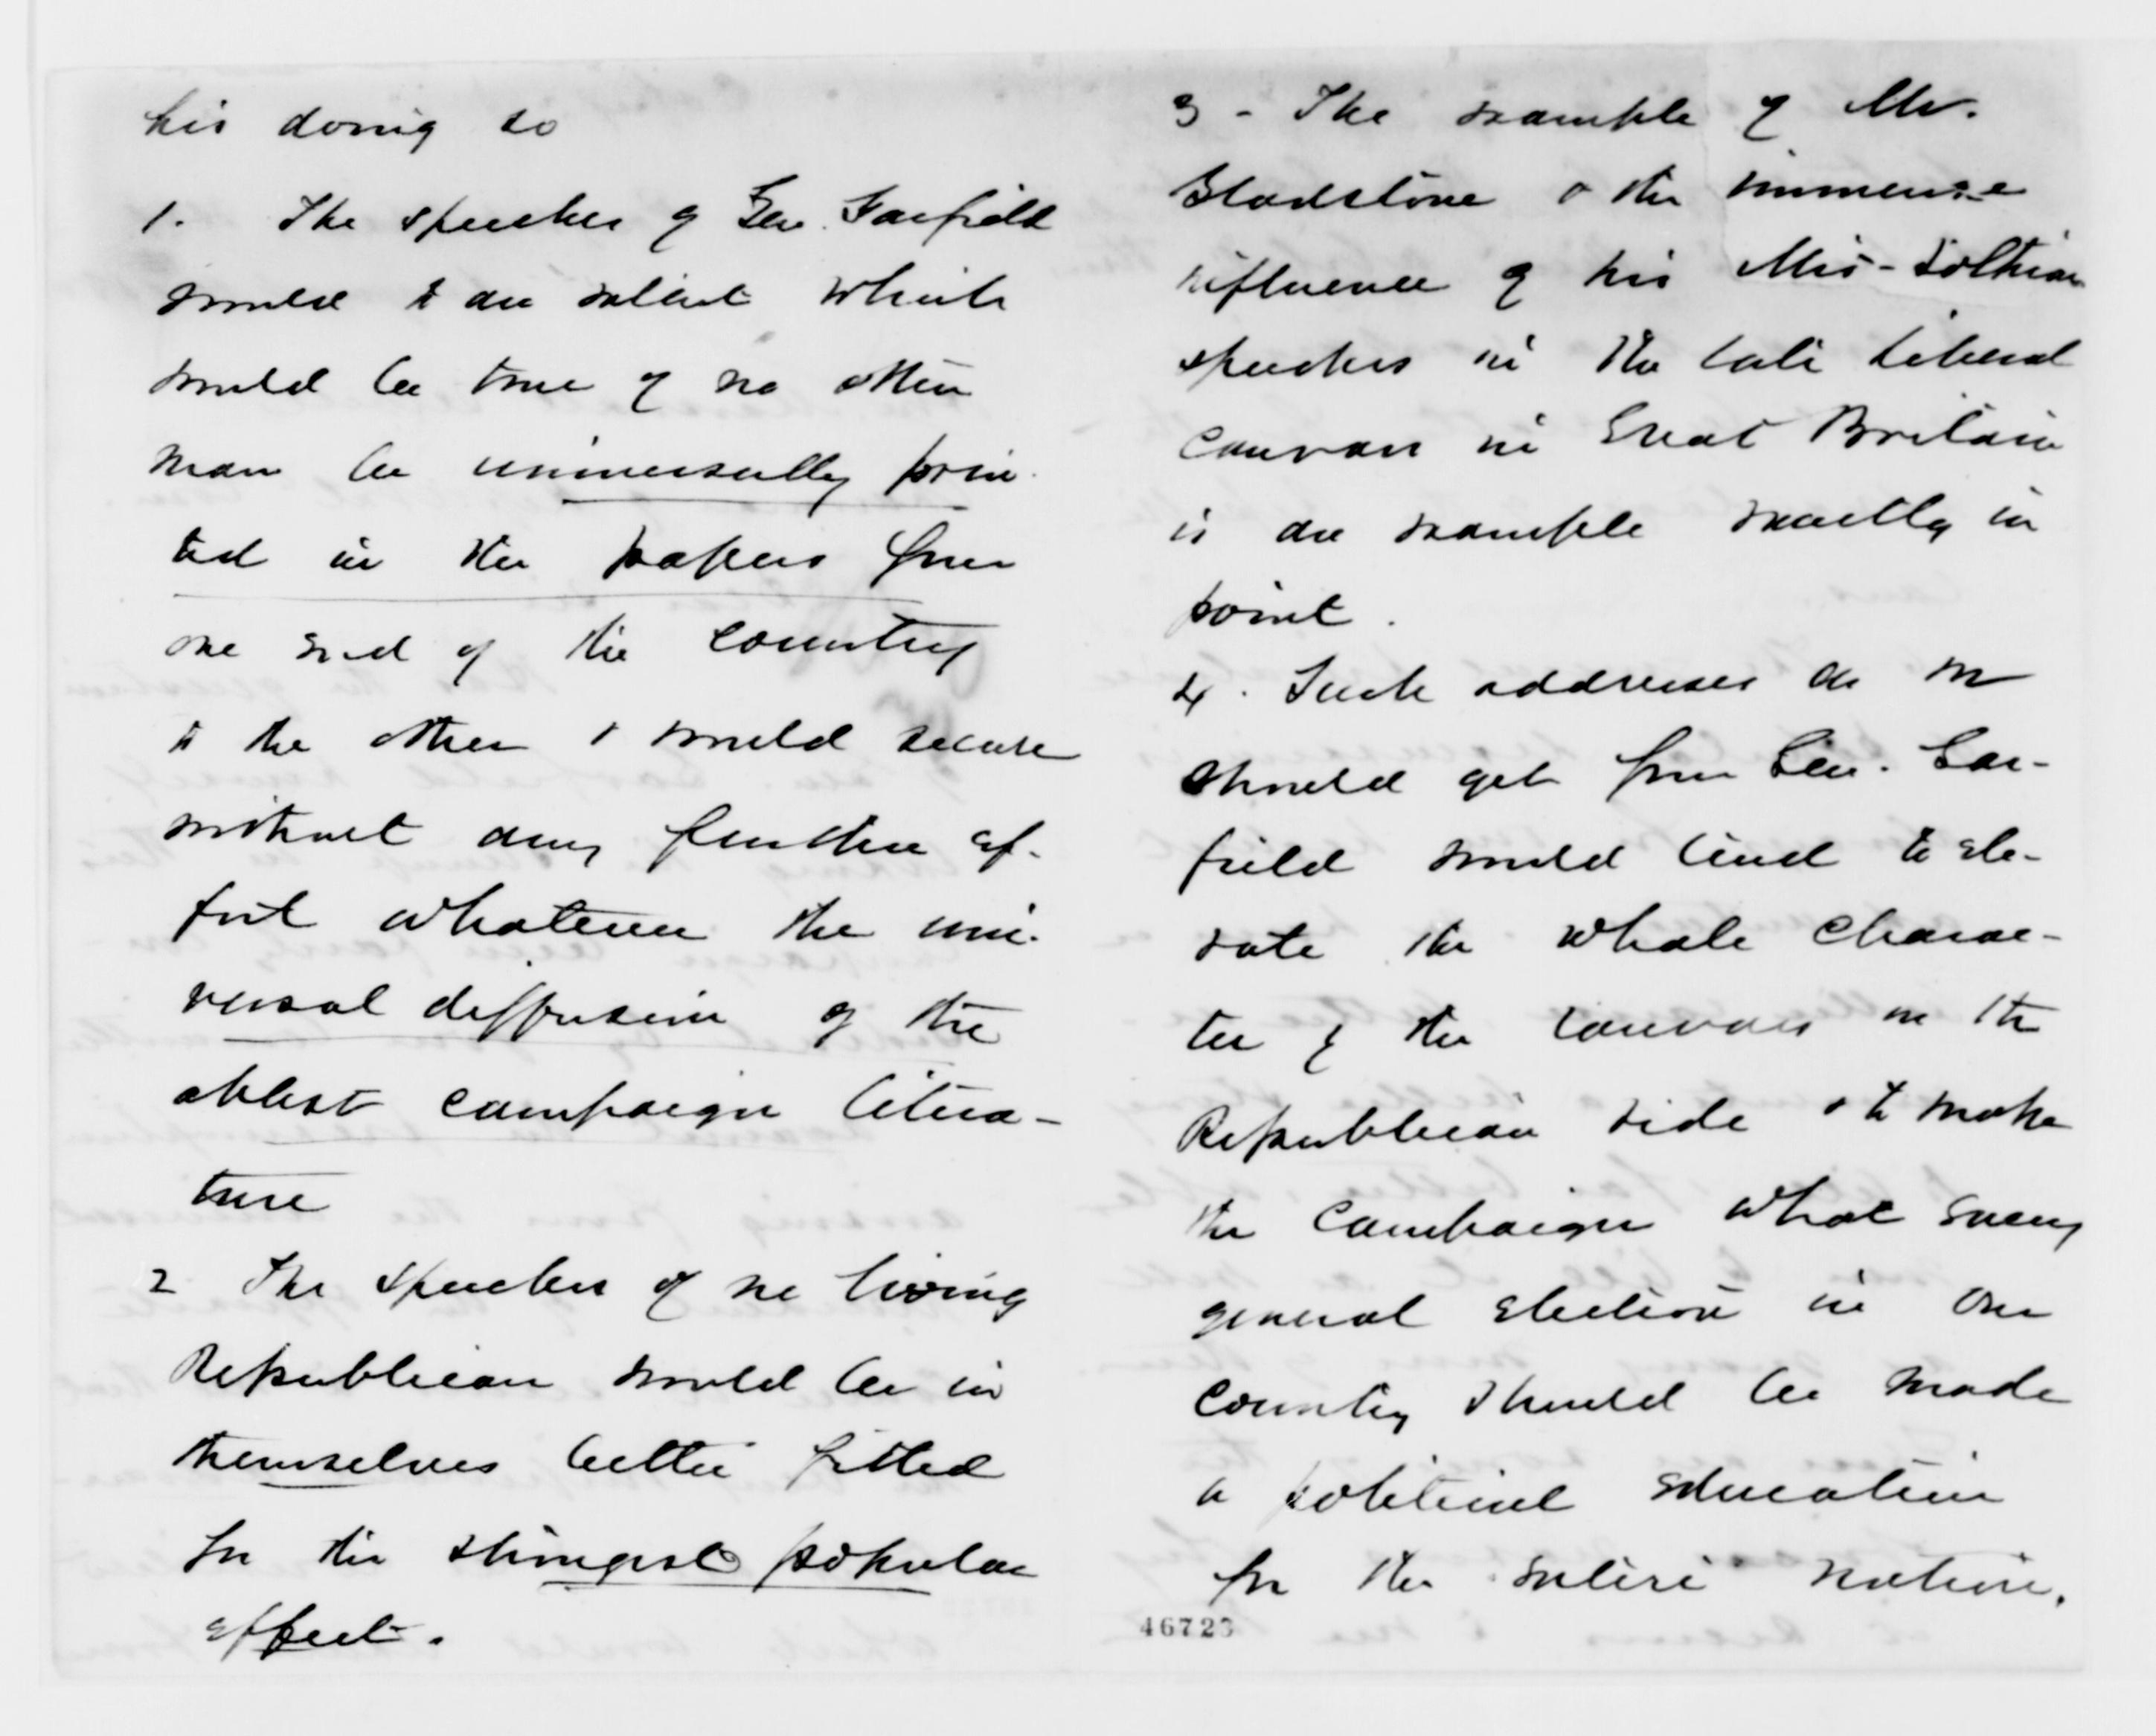 his doing so
1. The speeches of Gen. Garfield
would to an extent which
would be true of no other
man be universally prin-
ted in the papers from
one end of the country
to the other & would secure
without any further ef-
fort whatever the uni-
versal diffusion of the
ablest campaign litera-
ture
2 The speeches of no living
Republican would be in
themselves better fitted
for the strongest popular
effect.
3 - The example of Mr.
Gladstone & the immense
influence of his Mid-Lothian
speeches in the late Liberal
canvass in Great Britain
is an example exactly in
point.
4. Such addresses as we
should get from Gen. Gar-
field would tend to ele-
vate the whole charac-
ter of the canvass on the
Republican side & to make
the campaign what every
general election in our
country should be made
a political education
for the entire nation.
46723